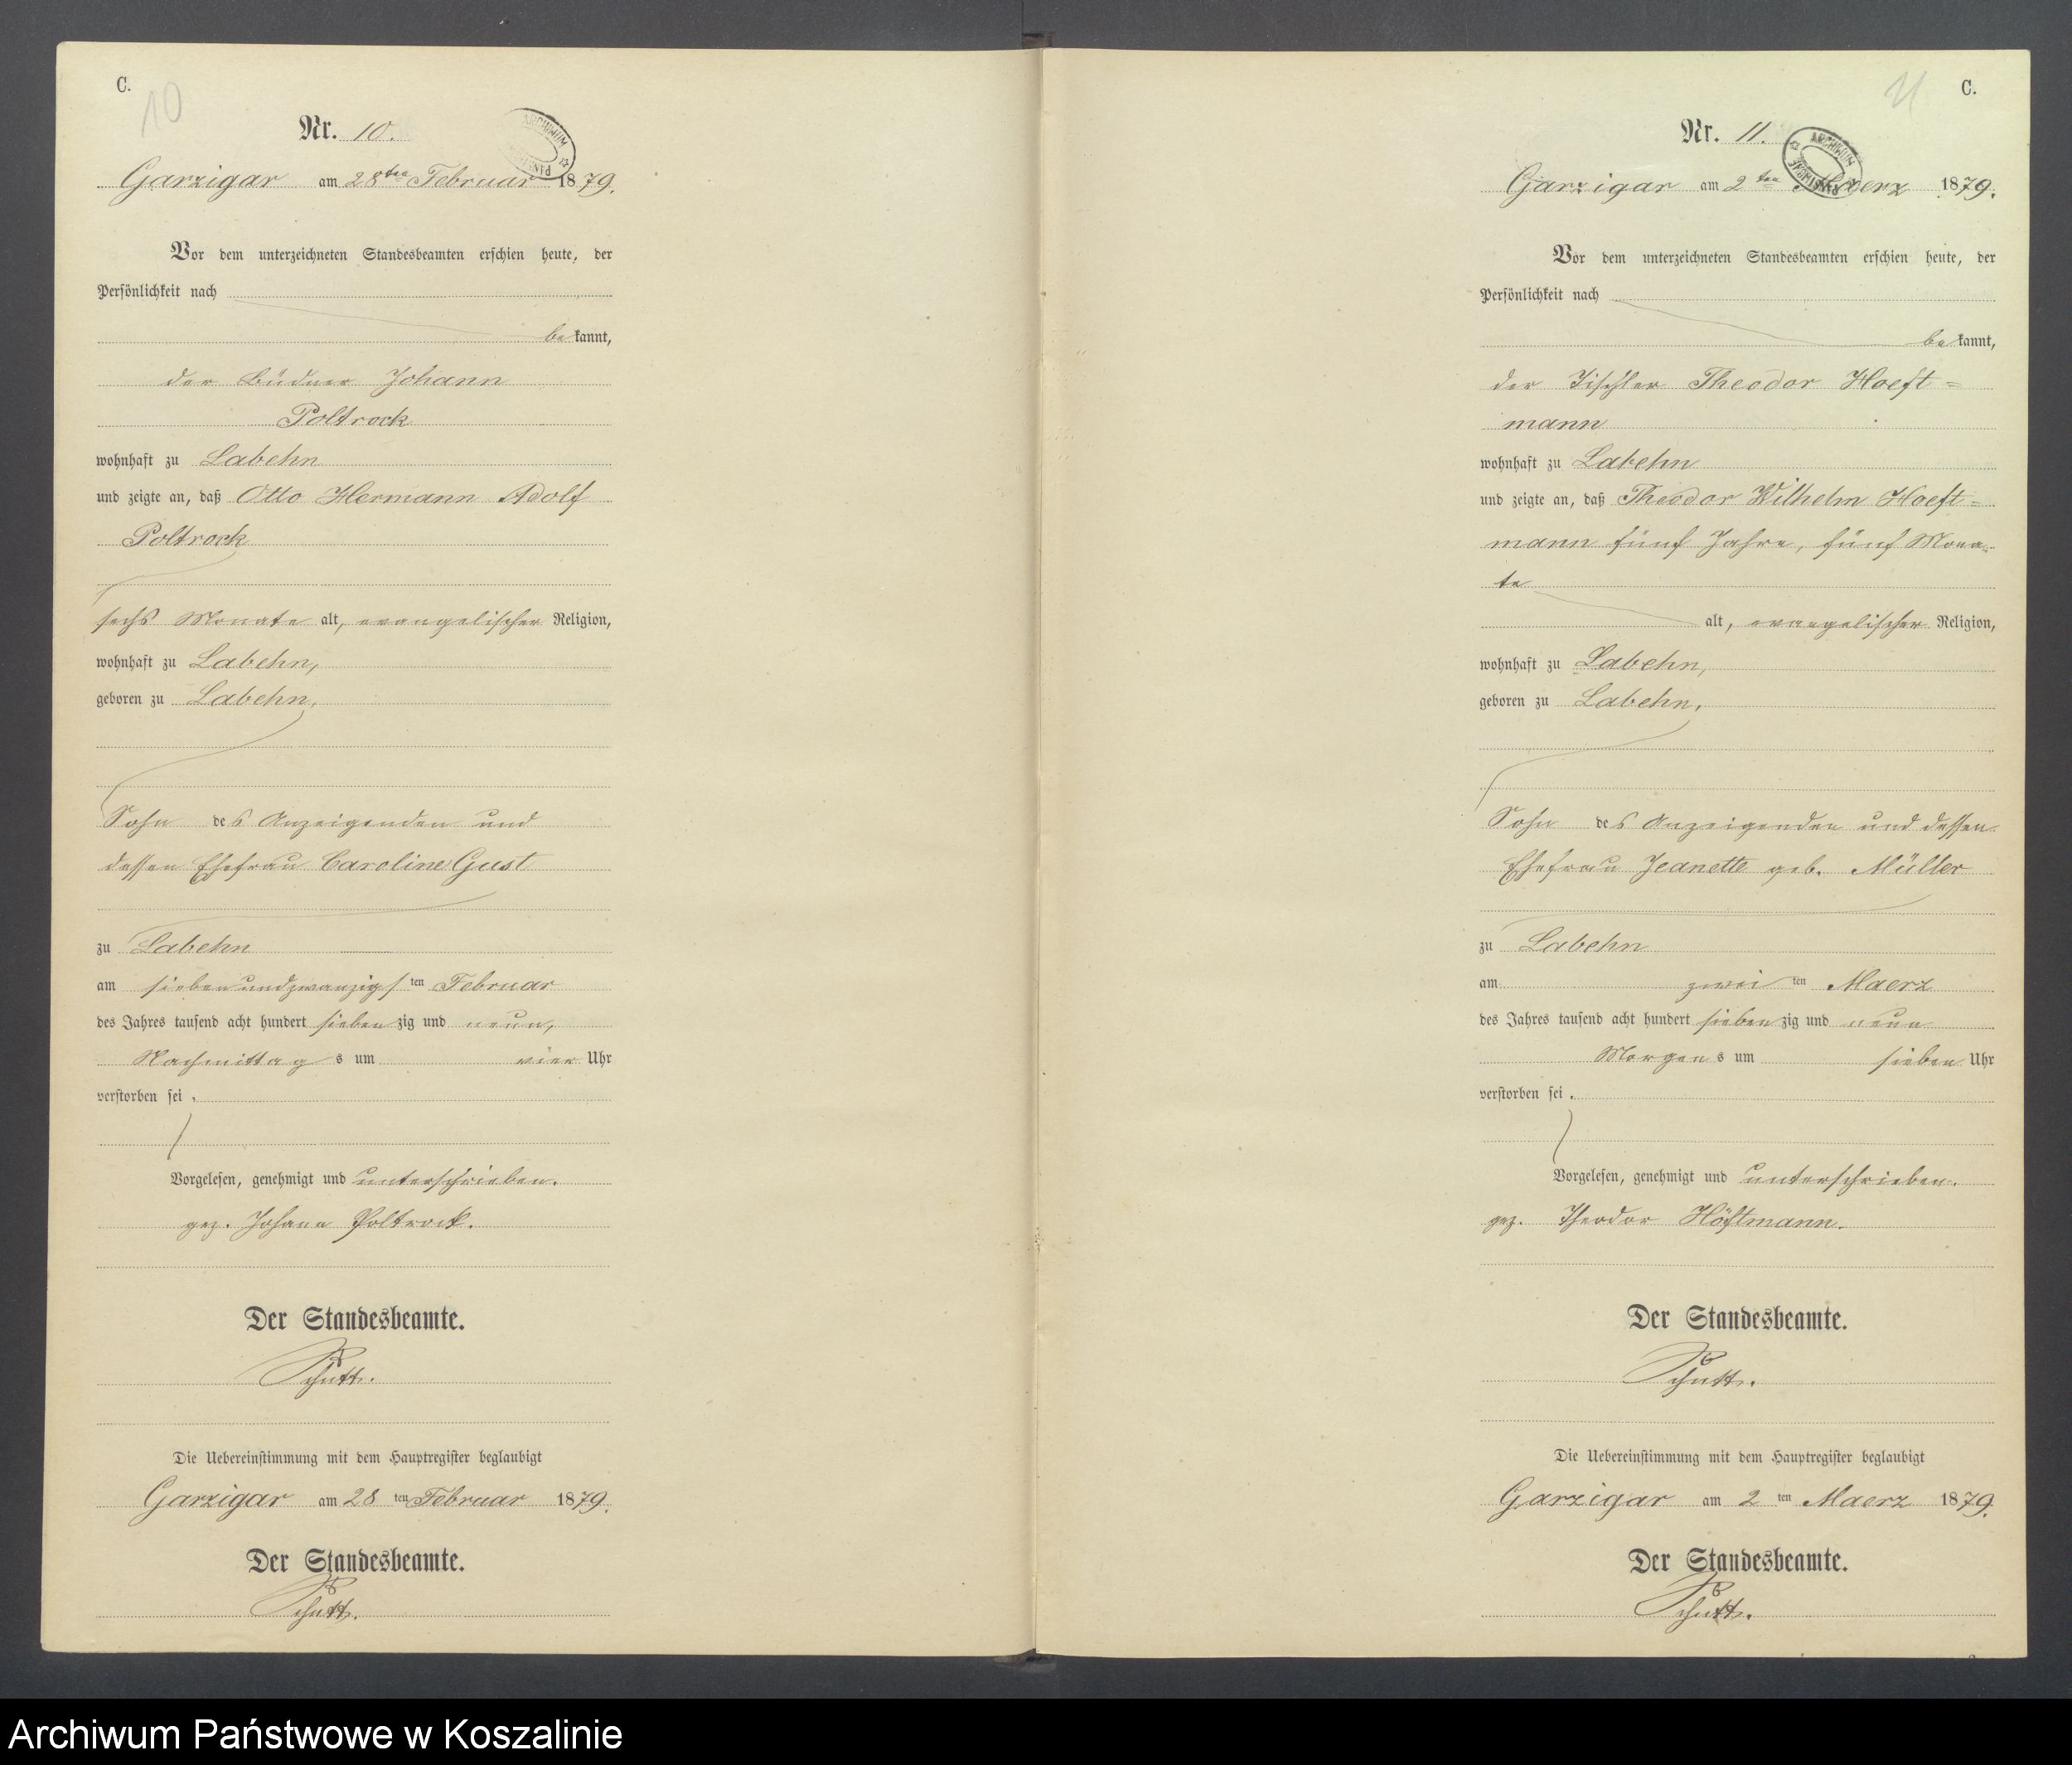 C.
10
Nr. 10.
ARCHIWUM
Garzigar am 28ten Februar 1879.
Vor dem unterzeichneten Standesbeamten erschien heute, der
Persönlichkeit nach
bekannt,
der Büdner Johann
Poltrock
wohnhaft zu Labehn
und zeigte an, daß Otto Hermann Adolf
Poltrock
sechs Monate alt, evangelischer Religion,
wohnhaft zu Labehn,
geboren zu Labehn,
Sohn des Anzeigenden und
dessen Ehefrau Caroline Gust
zu Labehn
am siebenundzwanzigsten Februar
des Jahres tausend acht hundert siebenzig und neun,
Nachmittags um vier Uhr
verstorben sei.
Vorgelesen, genehmigt und unterschrieben.
gez. Johann Poltrock.
Der Standesbeamte.
Schutt.
Die Uebereinstimmung mit dem Hauptregister beglaubigt
Garzigar am 28ten Februar 1879.
Der Standesbeamte.
Schutt.
11
C.
Nr. 11.
ARCHIWUM
Garzigar am 2ten Maerz 1879.
Vor dem unterzeichneten Standesbeamten erschien heute, der
Persönlichkeit nach
bekannt,
der Tischler Theodor Hoeft=
mann
wohnhaft zu Labehn
und zeigte an, daß Theodor Wilhelm Hoeft=
mann fünf Jahre, fünf Mona=
te
alt, evangelischer Religion,
wohnhaft zu Labehn,
geboren zu Labehn,
Sohn des Anzeigenden und dessen
Ehefrau Jeanette geb. Müller
zu Labehn
am zweiten Maerz
des Jahres tausend acht hundert siebenzig und neun
Morgens um sieben Uhr
verstorben sei.
Vorgelesen, genehmigt und unterschrieben.
gez. Theodor Höftmann.
Der Standesbeamte.
Schutt.
Die Uebereinstimmung mit dem Hauptregister beglaubigt
Garzigar am 2ten Maerz 1879.
Der Standesbeamte.
Schutt.
Archiwum Państwowe w Koszalinie